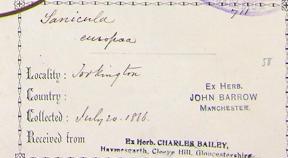 Sanicula
europaa
58
Locality:
Country:
Collected: July 20. 1886.
Received from
Ex Herb.
JOHN BARROW
MANCHESTER.
Ex Herb. CHARLES BAILEY,
Haymesgarth, Cleeve Hill, Gloucestershire.